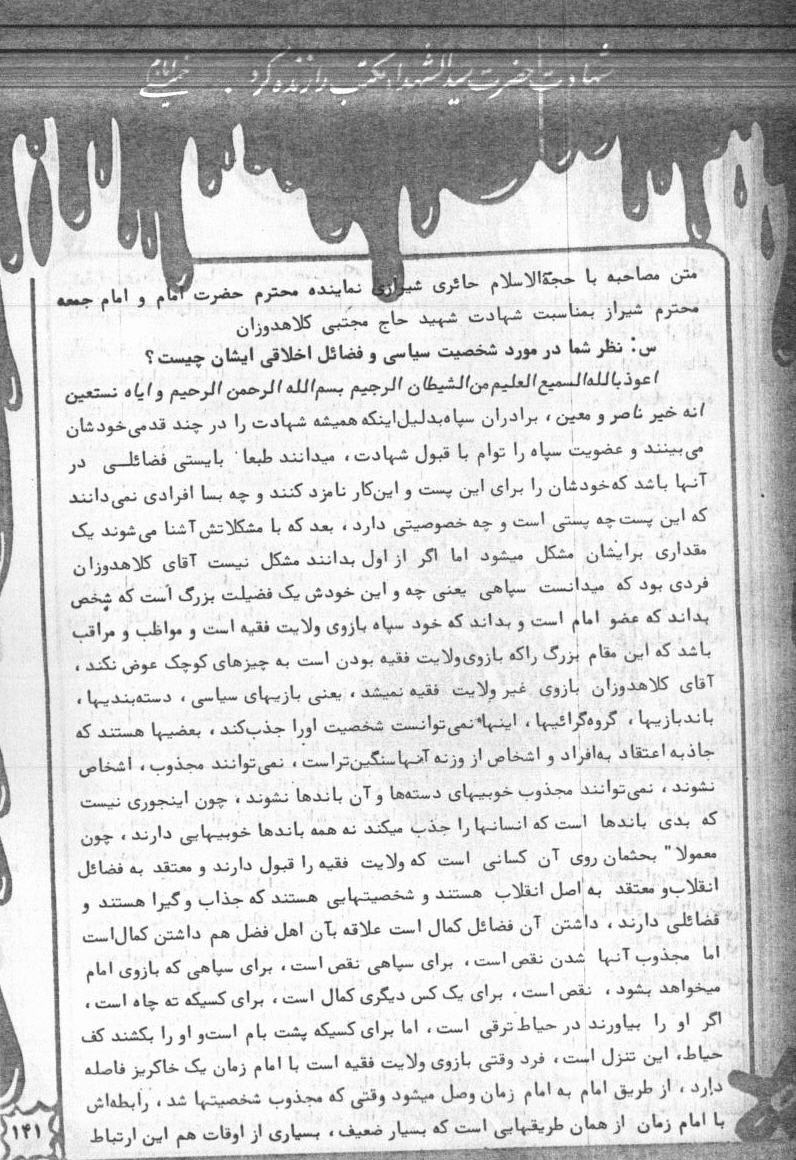 شهادت حضرت سیدالشهداء مکتب را زنده کرد .
امام خمینی
متن مصاحبه با حجةالاسلام حائری شیرازی نماینده محترم حضرت امام و امام جمعه
محترم شیراز بمناسبت شهادت شهید حاج مجتبی کلاهدوزان
س: نظر شما در مورد شخصیت سیاسی و فضائل اخلاقی ایشان چیست؟
اعوذبالله‌السمیع‌العلیم‌من‌الشیطان الرجیم بسم‌الله الرحمن الرحیم و ایاه نستعین
انه خیر ناصر و معین ، برادران سپاه‌بدلیل‌اینکه همیشه شهادت را در چند قدمی‌خودشان
می‌بینند و عضویت سپاه را توام با قبول شهادت ، میدانند طبعا بایستی فضائلـی در
آنها باشد که‌خودشان را برای این پست و این‌کار نامزد کنند و چه بسا افرادی نمی‌دانند
که این پست‌چه پستی است و چه خصوصیتی دارد ، بعد که با مشکلاتش آشنا می‌شوند یک
مقداری برایشان مشکل میشود اما اگر از اول بدانند مشکل نیست آقای کلاهدوزان
فردی بود که میدانست سپاهی یعنی چه و این خودش یک فضیلت بزرگ است که شخص
بداند که عضو امام است و بداند که خود سپاه بازوی ولایت فقیه است و مواظب و مراقب
باشد که این مقام بزرگ راکه بازوی‌ولایت فقیه بودن است به چیزهای کوچک عوض نکند ،
آقای کلاهدوزان بازوی غیر ولایت فقیه نمیشد ، یعنی بازیهای سیاسی ، دسته‌بندیها ،
باندبازیها ، گروه‌گرائیها ، اینها نمی‌توانست شخصیت اورا جذب‌کند ، بعضیها هستند که
جاذبه اعتقاد به‌افراد و اشخاص از وزنه آنهاسنگین‌تراست ، نمی‌توانند مجذوب ، اشخاص
نشوند ، نمی‌توانند مجذوب خوبیهای دسته‌ها و آن باندها نشوند ، چون اینجوری نیست
که بدی باندها است که انسانها را جذب میکند نه همه باندها خوبیهایی دارند ، چون
معمولا" بحثمان روی آن کسانی است که ولایت فقیه را قبول دارند و معتقد به فضائل
انقلاب‌و معتقد به اصل انقلاب هستند و شخصیتهایی هستند که جذاب و گیرا هستند و
فضائلی دارند ، داشتن آن فضائل کمال است علاقه بآن اهل فضل هم داشتن کمال‌است
اما مجذوب آنها شدن نقص است ، برای سپاهی نقص است ، برای سپاهی که بازوی امام
میخواهد بشود ، نقص است ، برای یک کس دیگری کمال است ، برای کسیکه ته چاه است ،
اگر او را بیاورند در حیاط ترقی است ، اما برای کسیکه پشت بام است‌و او را بکشند کف
حیاط، این تنزل است ، فرد وقتی بازوی ولایت فقیه است با امام زمان یک خاکریز فاصله
دارد ، از طریق امام به امام زمان وصل میشود وقتی که مجذوب شخصیتها شد ، رابطه‌اش
با امام زمان از همان طریقهایی است که بسیار ضعیف ، بسیاری از اوقات هم این ارتباط
۱۴۱